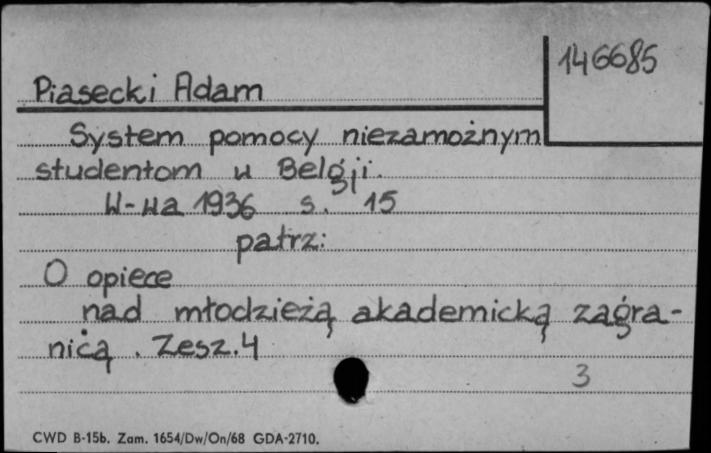 146685
Piasecki Adam
System pomocy niezamożnym
studentom w Belgji.
W-wa 1936 s. 15
patrz:
O opiece
nad młodzieżą akademicką zagra-
nicą. Zesz. 4
3
CWD B-15b. Zam. 1654/Dw/On/68 GDA-2710.